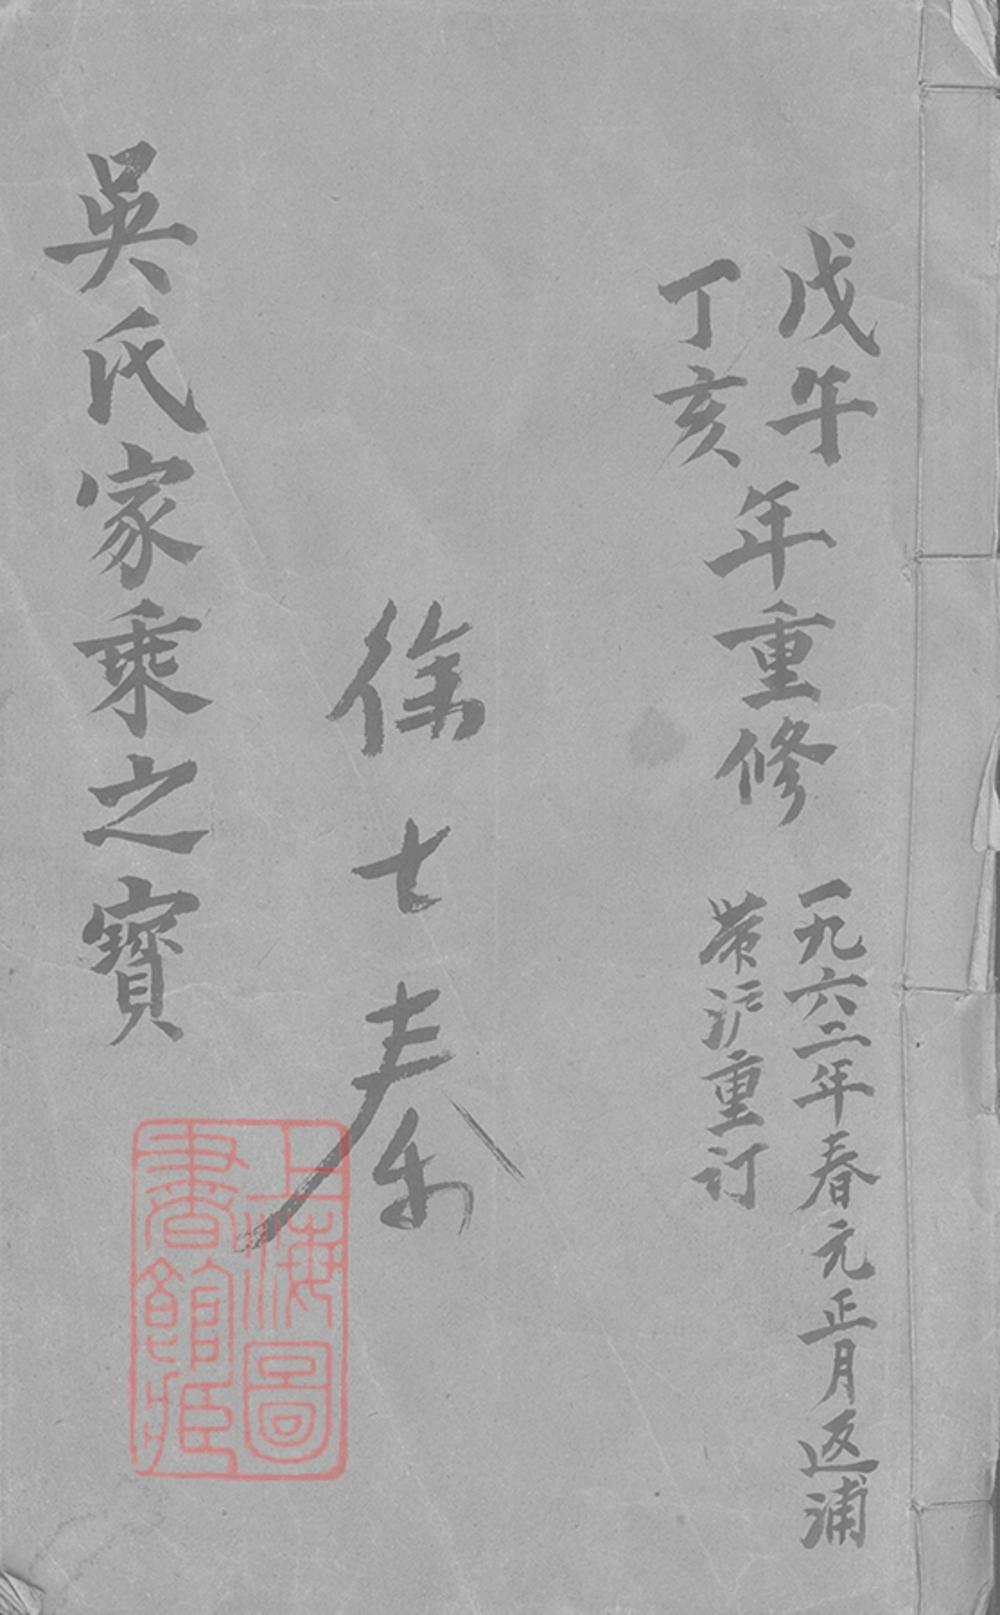 戊午
丁亥
年重修
一九六二年春元正月返浦
帶沪重订
徐
吳氏家乘之寶
上海圖
書館藏